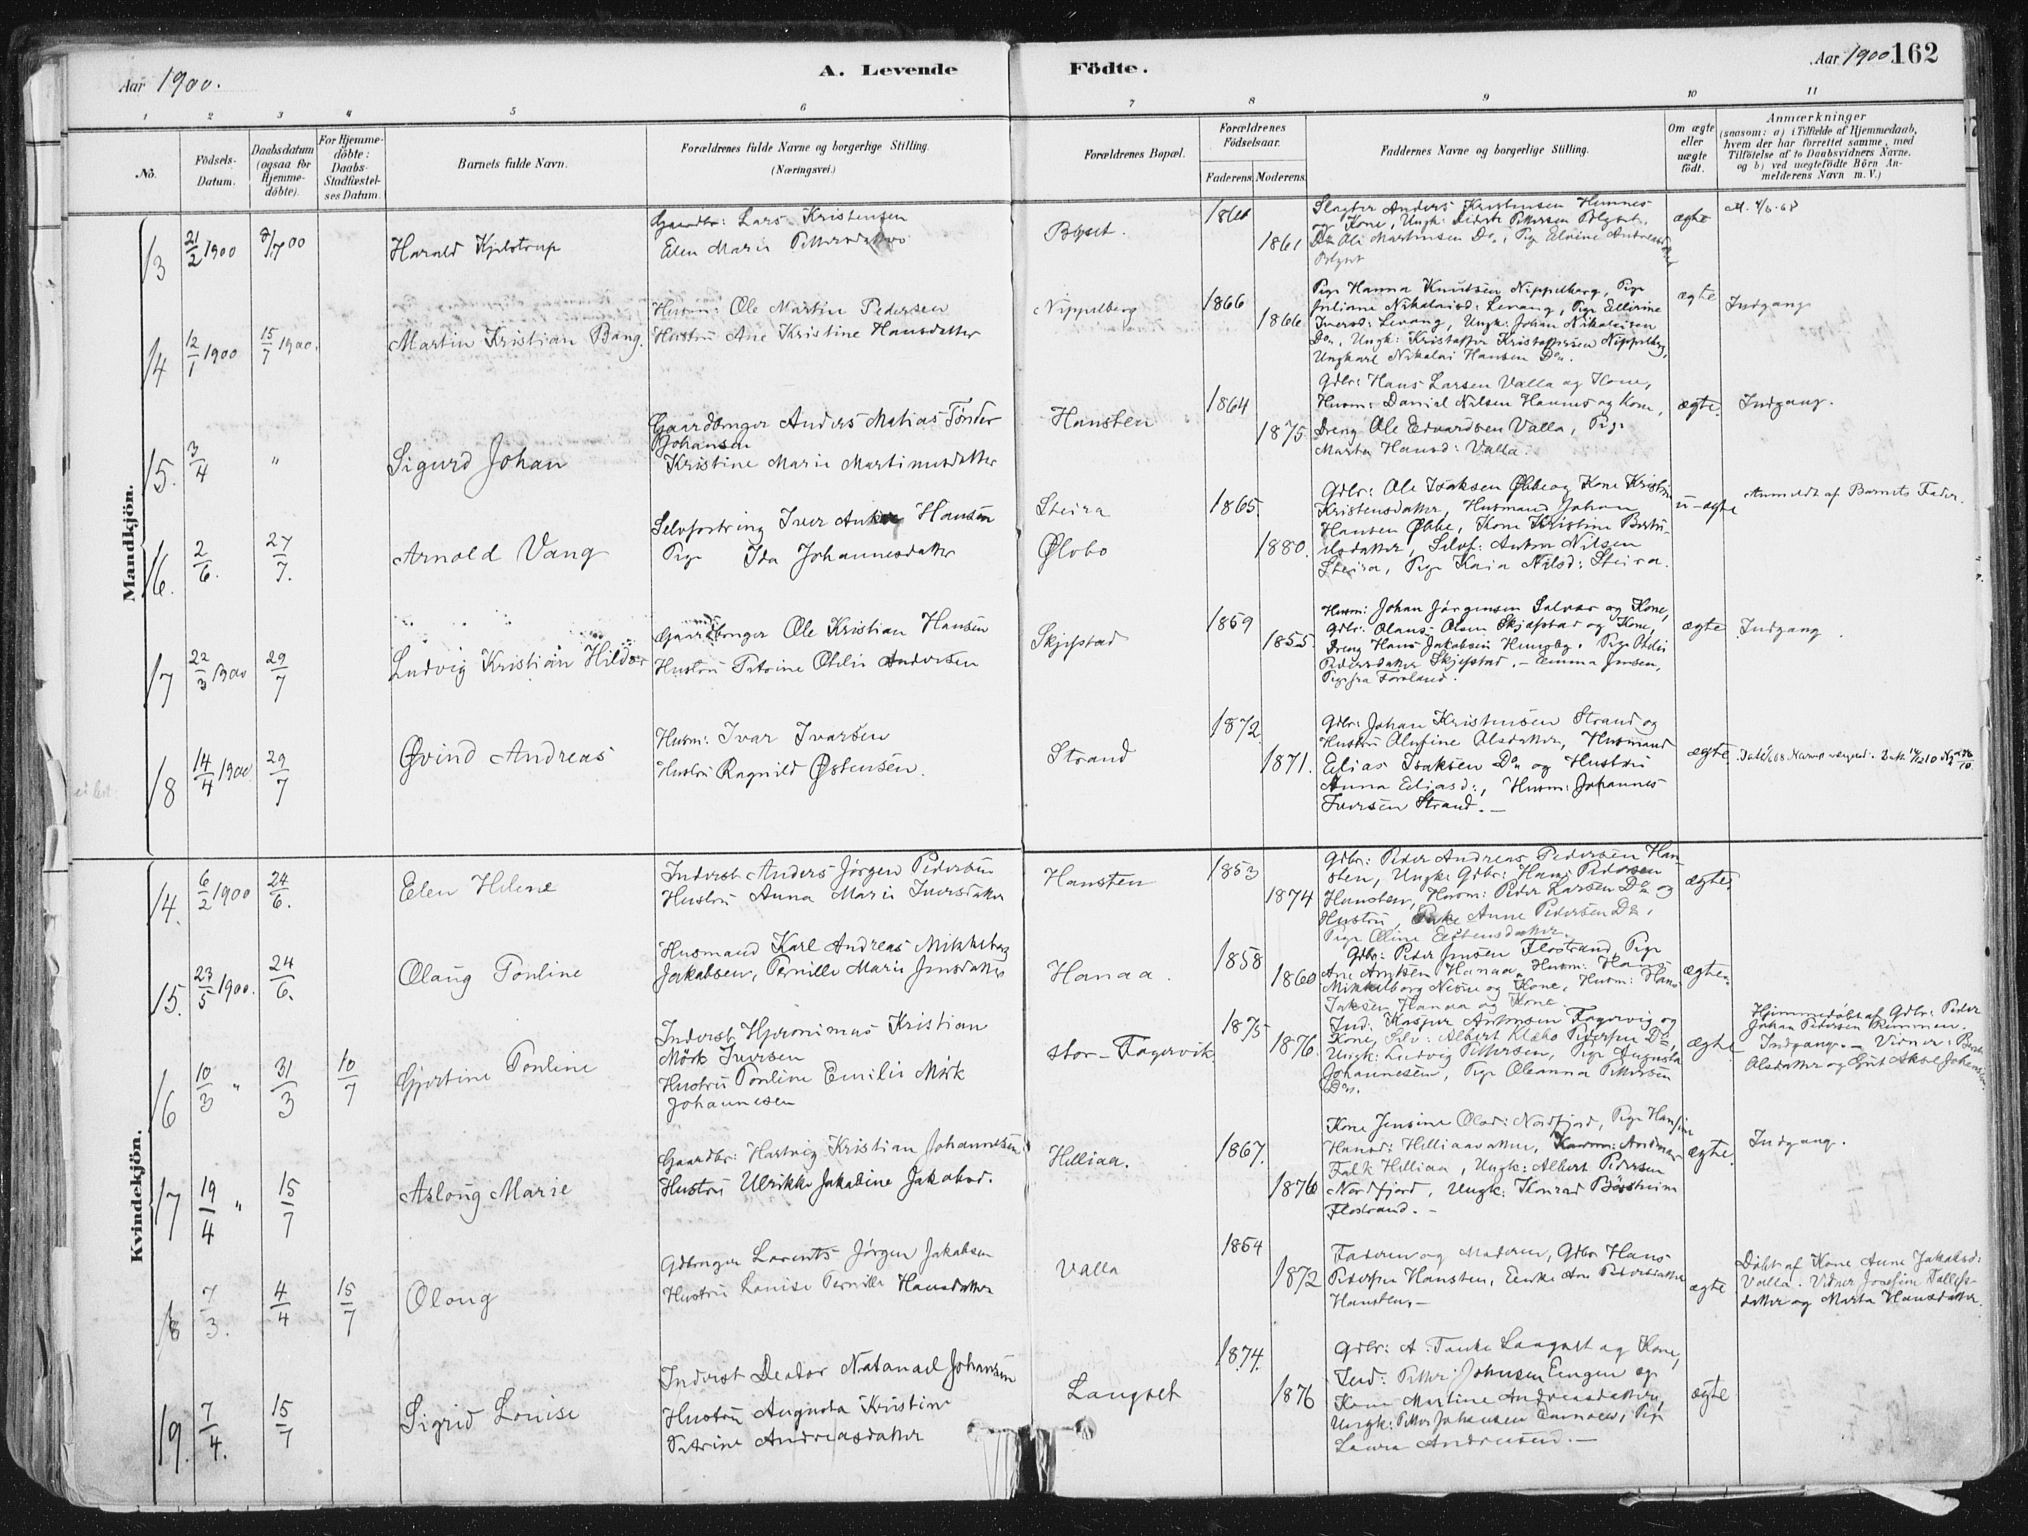 Aar 1900.
A. Levende
Födte.
Aar 1900
162
1 2 3 4 5 6 7 8 9 10 11
No.
Födsels-Datum.
Daabsdatum (ogsaa for Hjemme-döbte).
For Hjemme-döbte: Daabs-Stadfæstel-ses Datum.
Barnets fulde Navn.
Forældrenes fulde Navne og borgerlige Stilling.
(Næringsvei.)
Forældrenes Bopæl.
Forældrenes Födselsaar.
Faderens. Moderens.
Faddernes Navne og borgerlige Stilling.
Om ægte eller uægte födt.
Anmærkninger
(saasom: a) i Tilfælde af Hjemmedaab,
hvem der har forrettet samme, med
Tilföielse af to Daabsvidners Navne,
og b) ved uægtefödte Börn An-
melderens Navn m. V.)
Mandkjön.
13 21/2 1900 8/7 00
Harald Kjelstrup
Gaardbr: Lars Kristensen
Elen Marie
Bøset.
1861
1861
ægte
14 12/1 1900 15/7 1900.
Martin Kristian Bang.
Husm: Ole Martin Pedersen
Hustru Ane Kristine Hansdatter
Nippelberg
1866
1866.
Pige Hanna Knudsen Nippelberg, Pige
Juliane Nikolaisd: Levang, Pige Ellevine
Iversd: Levang, Ungk: Johan Nikolaisen
Do, Ungk: Kristoffer Kristoffersen Nippelberg,
Ungkarl Nikolai Hansen Do.
ægte
Indgang
15. 3/4 "
Sigurd Johan
Gaardbruger Anders Matias Tønder
Johansen
Kristine Marie Martinusdatter
Hansten
1864
1875
Gdbr: Hans Larsen Valla og Kone,
Husm: Daniel Nilsen Hannes og Kone,
Dreng Ole Edvardsen Valla, Pige
Marta Hansd: Valla.
ægte.
Indgang.
16. 2/6. 27/7.
Arnold Vang
Selvforsting Iver Anker Hansen
Pige Ida Johannesdatter
Steira
Ølvbo
1865.
1880.
Gdbr: Ole Isaksen Øbbe og Kone Kristine
Kristensdatter, Husmand Johan
Hansen Øbbe, Kone Kristine Bertu-
elsdatter, Selvf: Anton Nilsen
Steira, Pige Kaia Nilsd: Steira.
u-ægte
Anmeldt af Barnets Fader.
17 22/3 1900 29/7
Ludvig Kristian Hildor
Gaardbruger Ole Kristian Hansen
Hustru Petrine Othilie Andersen
Skjefstad
1859
1855.
Husm: Johan Jørgensen Salvær og Kone,
Gdbr: Olaus Olsen Skjefstad og Kone,
Dreng Hans Jakobsen, Pige Othilie
Pedersdatter Skjefstad. – Emma Jensen,
Pige fra
ægte
Indgang.
18 14/4 1900 29/7
Øvind Andreas
Husm: Ivar Ivarsen
Hustru Ragnild Østensen.
Strand
1872.
1871.
Gdbr: Johan Kristensen Strand og
Hustru Alufine Olsdatter, Husmand
Elias Isaksen Do og Hustru
Anna Eliasd:, Husm: Johannes
Iversen Strand. –
ægte
Kvindekjön.
14. 6/2 1900 24/6.
Elen Helene
Inderst Anders Jørgen Pedersen
Hustru Anna Marie Iversdatter
Hansten
1853
1874
Gdbr: Peder Andreas Pedersen Han-
sten, Ungk: Gdbr: Hans Pedersen
Hansten, Husm: Peder Larsen Do og
Hustru, Enke Anne Pedersen Do,
Pige Oline Eistensdatter.
ægte.
15. 23/5 1900. 24/6.
Olaug Tonline
Husmand Karl Andreas Mikkelborg
Jakobsen, Pernille Marie Jensdatter
Hanaa.
1858
1860
Gdbr: Peder Jensen Flostrand, Pige
Ane Hanaa, Husm: Hans
Mikkelborg og Kone, Husm: Hans
Isaksen Hanaa og Kone.
ægte.
16 10/3 " 31/3 10/7
Gjertine Tonline
Inderst Hjeronimus Kristian
Mørk Iversen
Hustru Tonline Emilie Mørk
Johannesen
Stor-Fagervik
1875
1876.
Ind: Kasper Antonsen Fagervig og
Kone, Selv: Albert Klæbo Pedersen Do,
Ungk: Ludvig Pettersen, Pige Augusta
Johannesen, Pige Oleanna Pettersen
Do.
ægte
Hjemmedøbt af Gdbr: Peder
Johan Pedersen Remmen.
Indgang. – Vidner:
Olsdatter og Gut Aksel Johansen
17 19/4 " 15/7
Aslaug Marie
Gaardbr: Hartvig Kristian Johannesen
Hustru Ulrikke Jakobine Jakobsd.
Helliaa.
1867.
1876
Kone Jensine Olsd: Nordfjord, Pige Hansine
Hansd: Helliaavatn,
Falk Helliaa, Ungk: Albert Pedersen
Nordfjord, Ungk: Konrad
Flostrand. –
ægte.
Indgang.
18 7/3. 4/4 15/7
Olaug
Gdbruger Lorents Jørgen Jakobsen
Hustru Louise Pernille Hansdatter
Valla
1854
1872
Faderen og Moderen, Gdbr Hans
Pedersen Hansten, Enke Ane Pedersdatter
Hansten. –
ægte
Døbt af Kone Anne Jakobsd:
Valla. Vidner Josefine Tollefs-
datter og Marta Hansdatter.
19. 7/4. 15/7
Sigrid Louise
Inderst Deador Natanael Johansen
Hustru Augusta Kristine
Petrine Andreasdatter
Langset
1874.
1876
Gdbr: A. Tanke Langset og Kone,
Ind: Petter Johnsen Engen og
Kone Martine Andreasdatter,
Ungk: Petter Johansen, Pige
Laura Andreasd. –
ægte